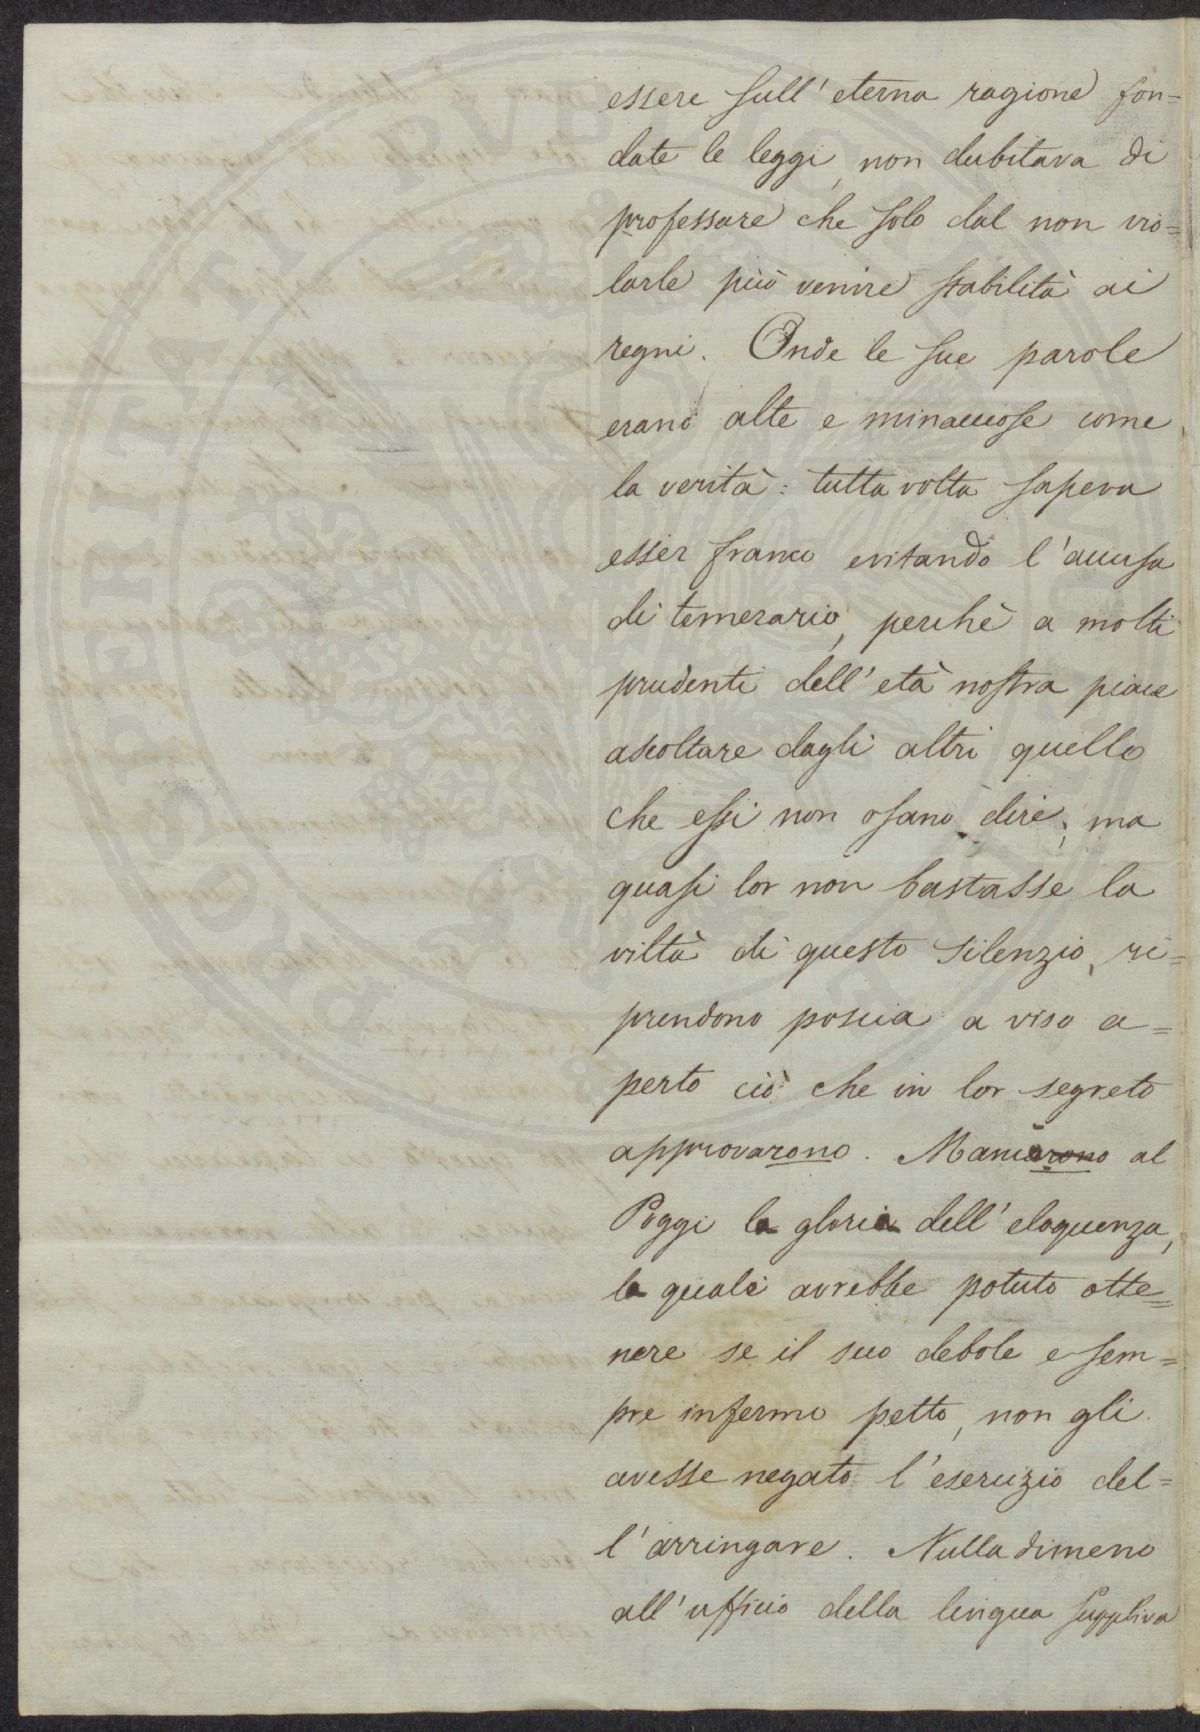 essere sull'eterna ragione fon=
date le leggi, non dubitava di
professare che solo dal non vio=
larle può venire stabilità ai
regni. Onde le sue parole
erano alte e minacciose come
la verità: tutta volta sapeva
esser franco evitando l'accusa
di temerario, perchè a molti
prudenti dell'età nostra piace
ascoltare dagli altri quello
che essi non osano dire; ma
quasi lor non bastasse la
viltà di questo silenzio, ri=
prendono poscia a viso a=
perto ciò che in lor segreto
approvarono. al
Poggi la gloria dell'eloquenza,
la quale avrebbe potuto otte=
nere se il suo debole e sem=
pre infermo petto, non gli
avesse negato l'esercizio del=
l'arringare. Nulladimeno
all'ufficio della lingua suppliva